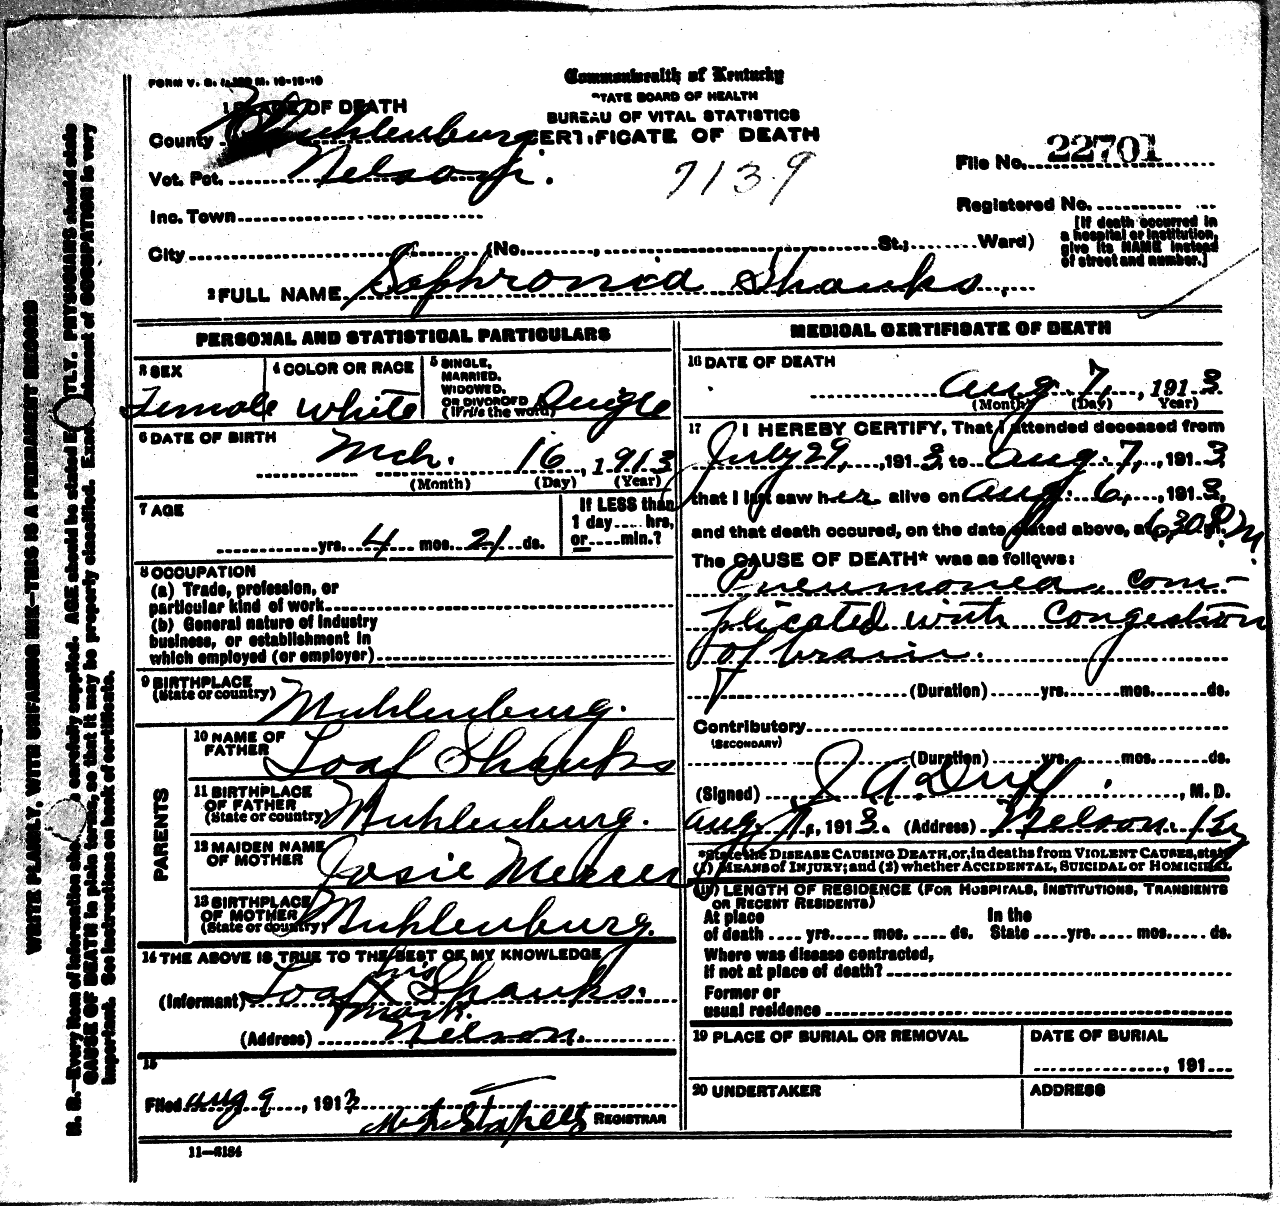 FORM V. S. 10-18-10
Commonwealth of Kentucky
STATE BOARD OF HEALTH
BUREAU OF VITAL STATISTICS
CERTIFICATE OF DEATH
1 PLACE OF DEATH
County Muhlenburg
Vot. Pct. Nelson
Inc. Town
City (No. , St.; Ward)
7139
File No. 22701
Registered No.
[If death occurred in
a hospital or institution,
give its NAME instead
of street and number.]
2 FULL NAME Sophronia Shanks,
PERSONAL AND STATISTICAL PARTICULARS
3 SEX
Female
4 COLOR OR RACE
White
5 SINGLE,
MARRIED,
WIDOWED,
OR DIVORCED
(Write the word) Single
6 DATE OF BIRTH
Mch. 16, 1913
(Month) (Day) (Year)
7 AGE
yrs. 4 mos. 21 ds.
If LESS than
1 day .... hrs,
or .... min.?
8 OCCUPATION
(a) Trade, profession, or
particular kind of work
(b) General nature of industry
business, or establishment in
which employed (or employer)
9 BIRTHPLACE
(State or country) Muhlenburg.
PARENTS
10 NAME OF
FATHER Loaf Shanks
11 BIRTHPLACE
OF FATHER
(State or country) Muhlenburg.
12 MAIDEN NAME
OF MOTHER Josie Mercer
13 BIRTHPLACE
OF MOTHER
(State or country) Muhlenburg.
14 THE ABOVE IS TRUE TO THE BEST OF MY KNOWLEDGE
his
(Informant) Loaf X Shanks.
mark.
(Address) Nelson.
15
Filed Aug 9, 1913
REGISTRAR
11-6184
MEDICAL CERTIFICATE OF DEATH
16 DATE OF DEATH
Aug. 7, 1913
(Month) (Day) Year)
17 I HEREBY CERTIFY, That I attended deceased from
July 29, 1913, to Aug. 7, 1913,
that I last saw her alive on Aug. 6, 1913,
and that death occured, on the date stated above, at 6,30 P.M.
The CAUSE OF DEATH* was as follows:
Pneumonia, com-
plicated with Congestion
of brain.
(Duration) yrs. mos. ds.
Contributory
(SECONDARY)
(Duration) yrs. mos. ds.
(Signed) J A. Duff, M. D.
Aug 7, 1913. (Address) Nelson. Ky
*State the DISEASE CAUSING DEATH, or, in deaths from VIOLENT CAUSES, state
(1) MEANS of INJURY; and (2) whether ACCIDENTAL, SUICIDAL or HOMICIDAL.
18) LENGTH OF RESIDENCE (FOR HOSPITALS, INSTITUTIONS, TRANSIENTS
OR RECENT RESIDENTS)
At place In the
of death .... yrs. mos. ds. State .... yrs. mos. ds.
Where was disease contracted,
If not at place of death?
Former or
usual residence
19 PLACE OF BURIAL OR REMOVAL
DATE OF BURIAL
, 191
20 UNDERTAKER
ADDRESS
WRITE PLAINLY, WITH UNFADING INK—THIS IS A PERMANENT RECORD
N. B.—Every item of information should be carefully supplied. AGE should be stated EXACTLY. PHYSICIANS should state
CAUSE OF DEATH in plain terms, so that it may be properly classified. Exact statement of OCCUPATION is very
important. See instructions on back of certificate.